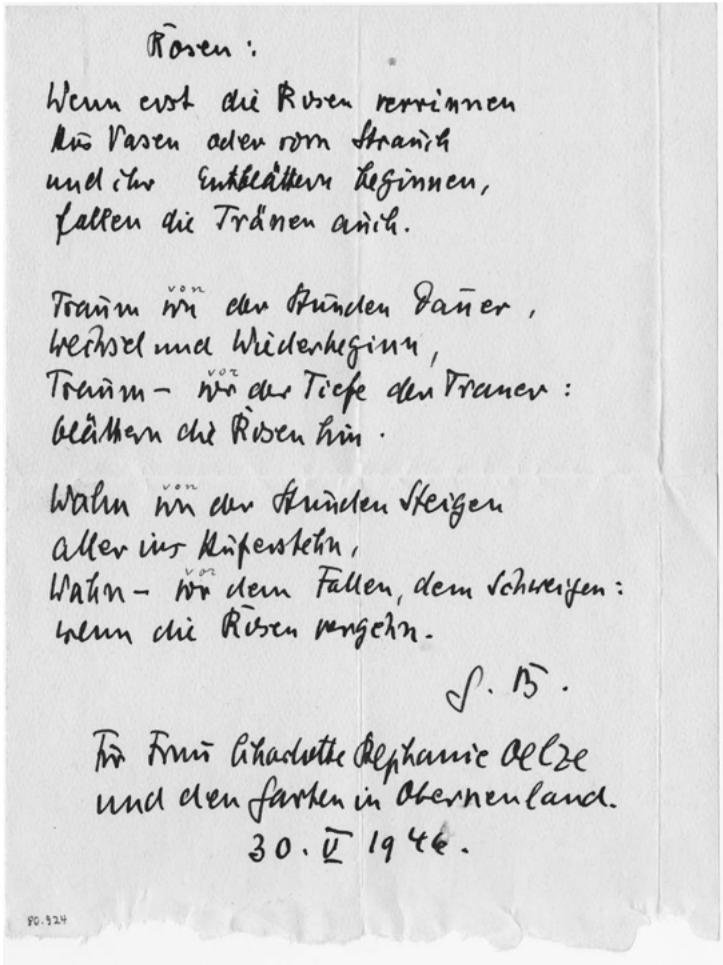 Rosen:
Wenn erst die Rosen verrinnen
Aus Vasen oder vom Strauch
und ihr Entblättern beginnen,
fallen die Tränen auch.
von
Traum von der Stunden Dauer,
Wechsel und Wiederbeginn,
vor
Traum – vor der Tiefe der Trauer:
blättern die Rosen hin.
von
Wahn von der Stunden Steigen
aller ins Auferstehn,
vor
Wahn – vor dem Fallen, dem Schweigen:
wenn die Rosen vergehn.
G. B.
Für Frau Charlotte Stephanie Oelze
und den Garten in Oberneuland.
30. V 1946.
80.924